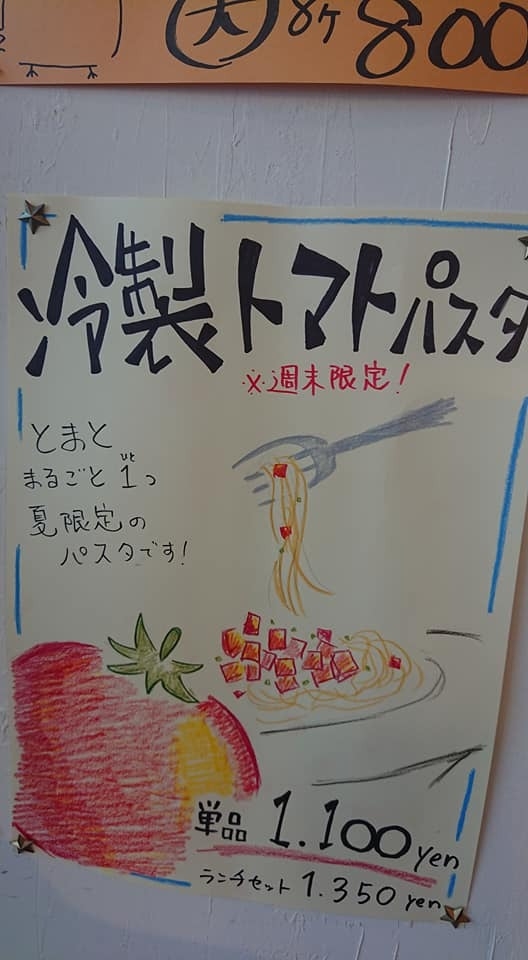 大 8ケ 800
冷製トマトパスタ
※週末限定!
とまと
まるごと1つ
ひと
夏限定の
パスタです!
単品 1.100yen
ランチセット 1.350yen